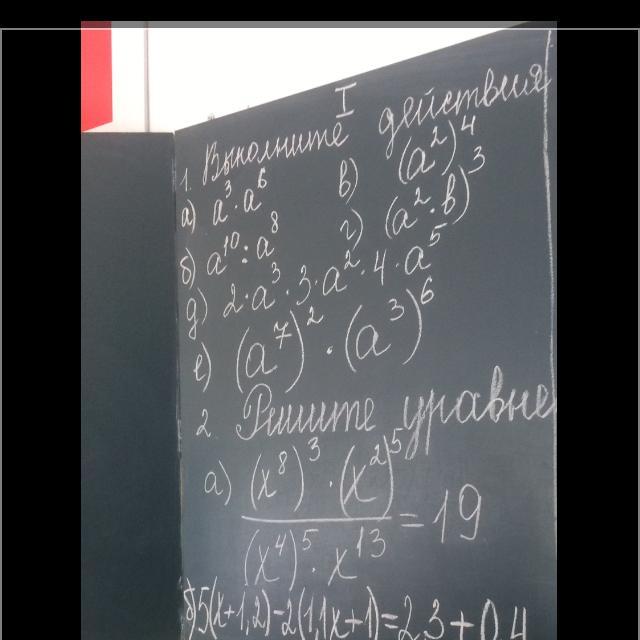 I
1. Выполните действия
а) a³·a⁶ в) (a²)⁴
б) a¹⁰:a⁸ г) (a²·b)³
д) 2·a³·3·a²·4·a⁵
е) (a⁷)²·(a³)⁶
2 Решите уравне
а) (x⁸)³·(x²)⁵ / (x⁴)⁵·x¹³ = 19
б) 5(x+1,2)-2(1,1x+1)=2,3+0,4